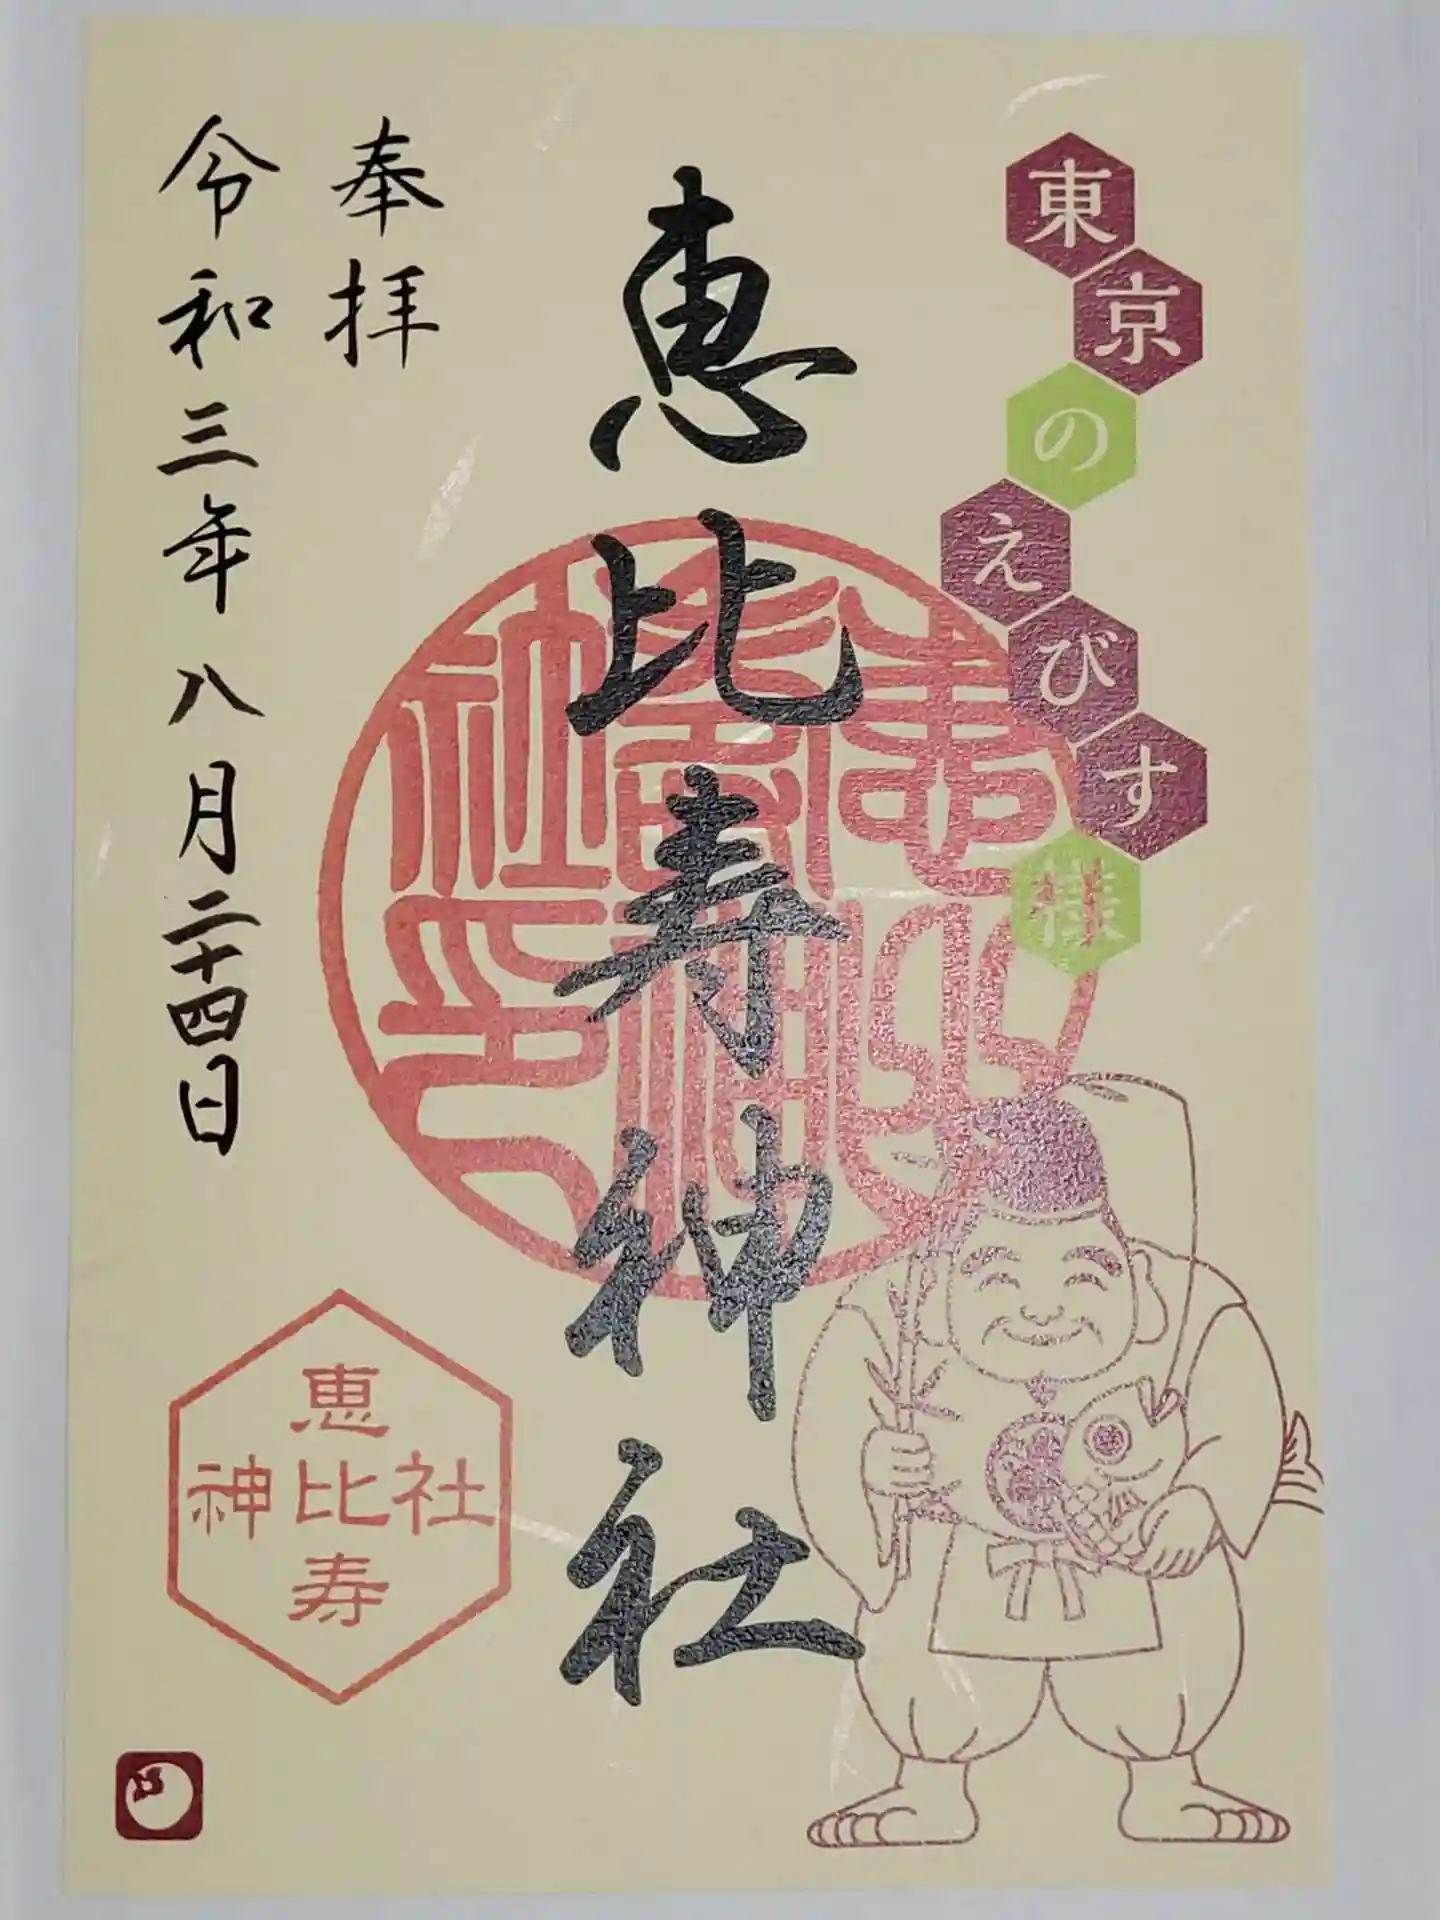 東京のえびす様
恵比寿神社
奉拝
令和三年八月二十四日
恵
神比社
寿